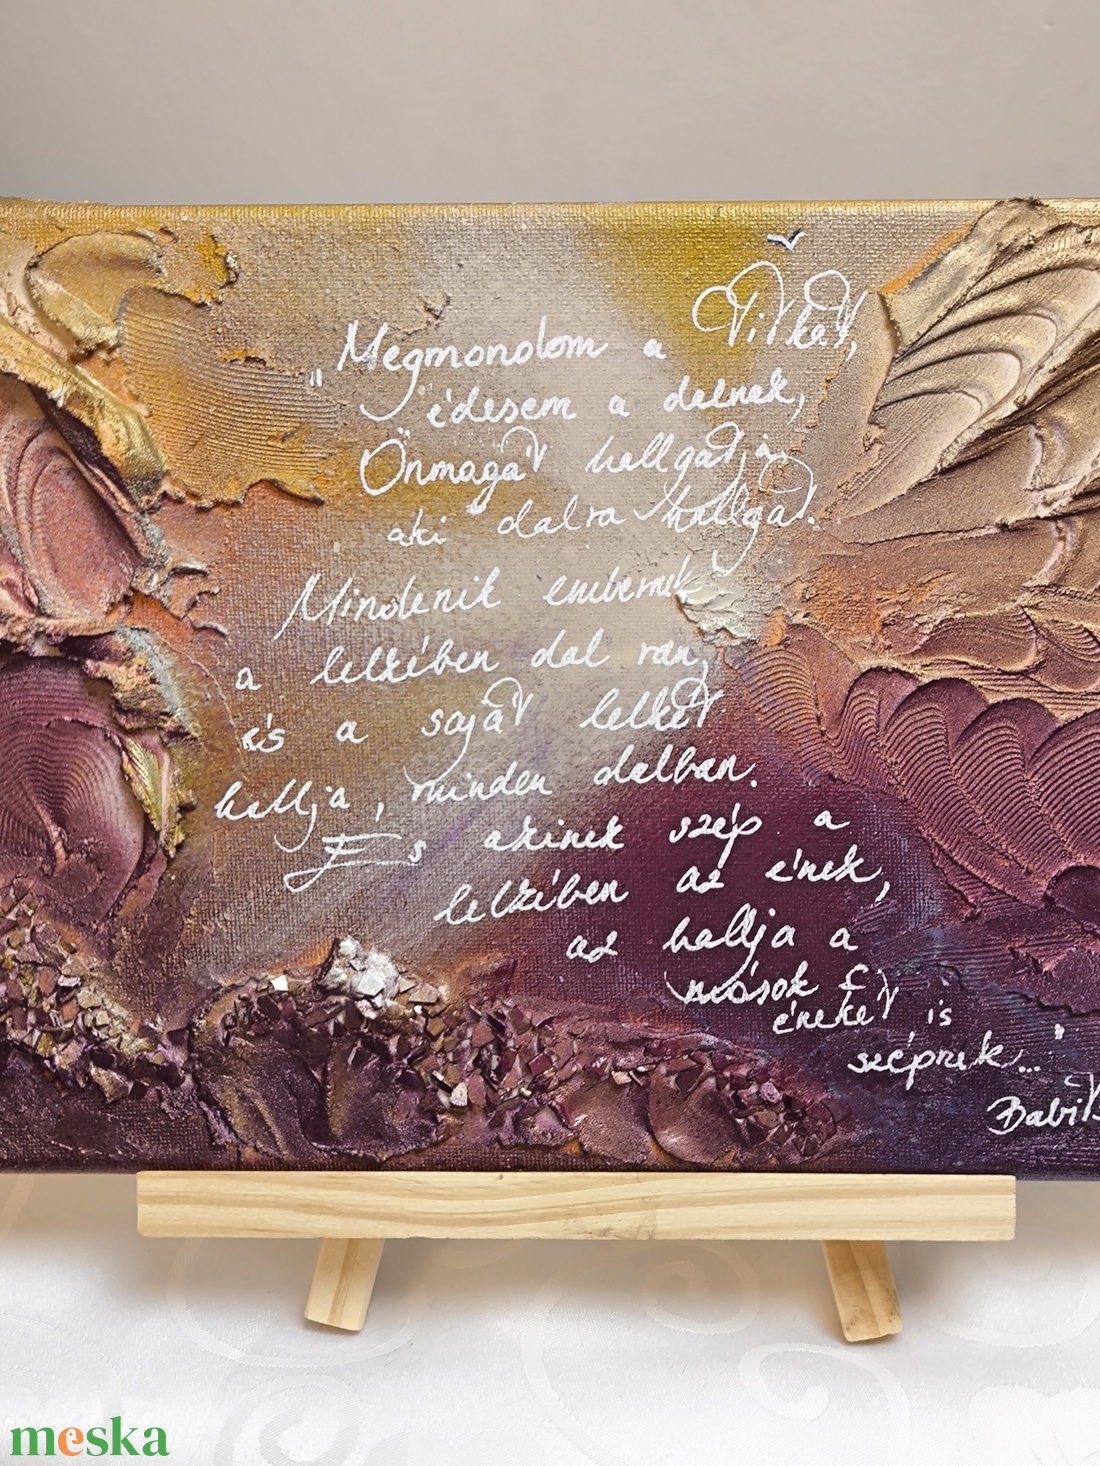 "Megmondom a Titkát,
édesem a dalnak,
Önmagát hallgatja
aki dalra hallgat.
Mindenik embernek
a lelkében dal van,
és a saját lelkét
hallja, minden dalban.
És akinek szép a
lelkében az ének,
az hallja a
mások
énekét is
szépnek..."
Babits
meska